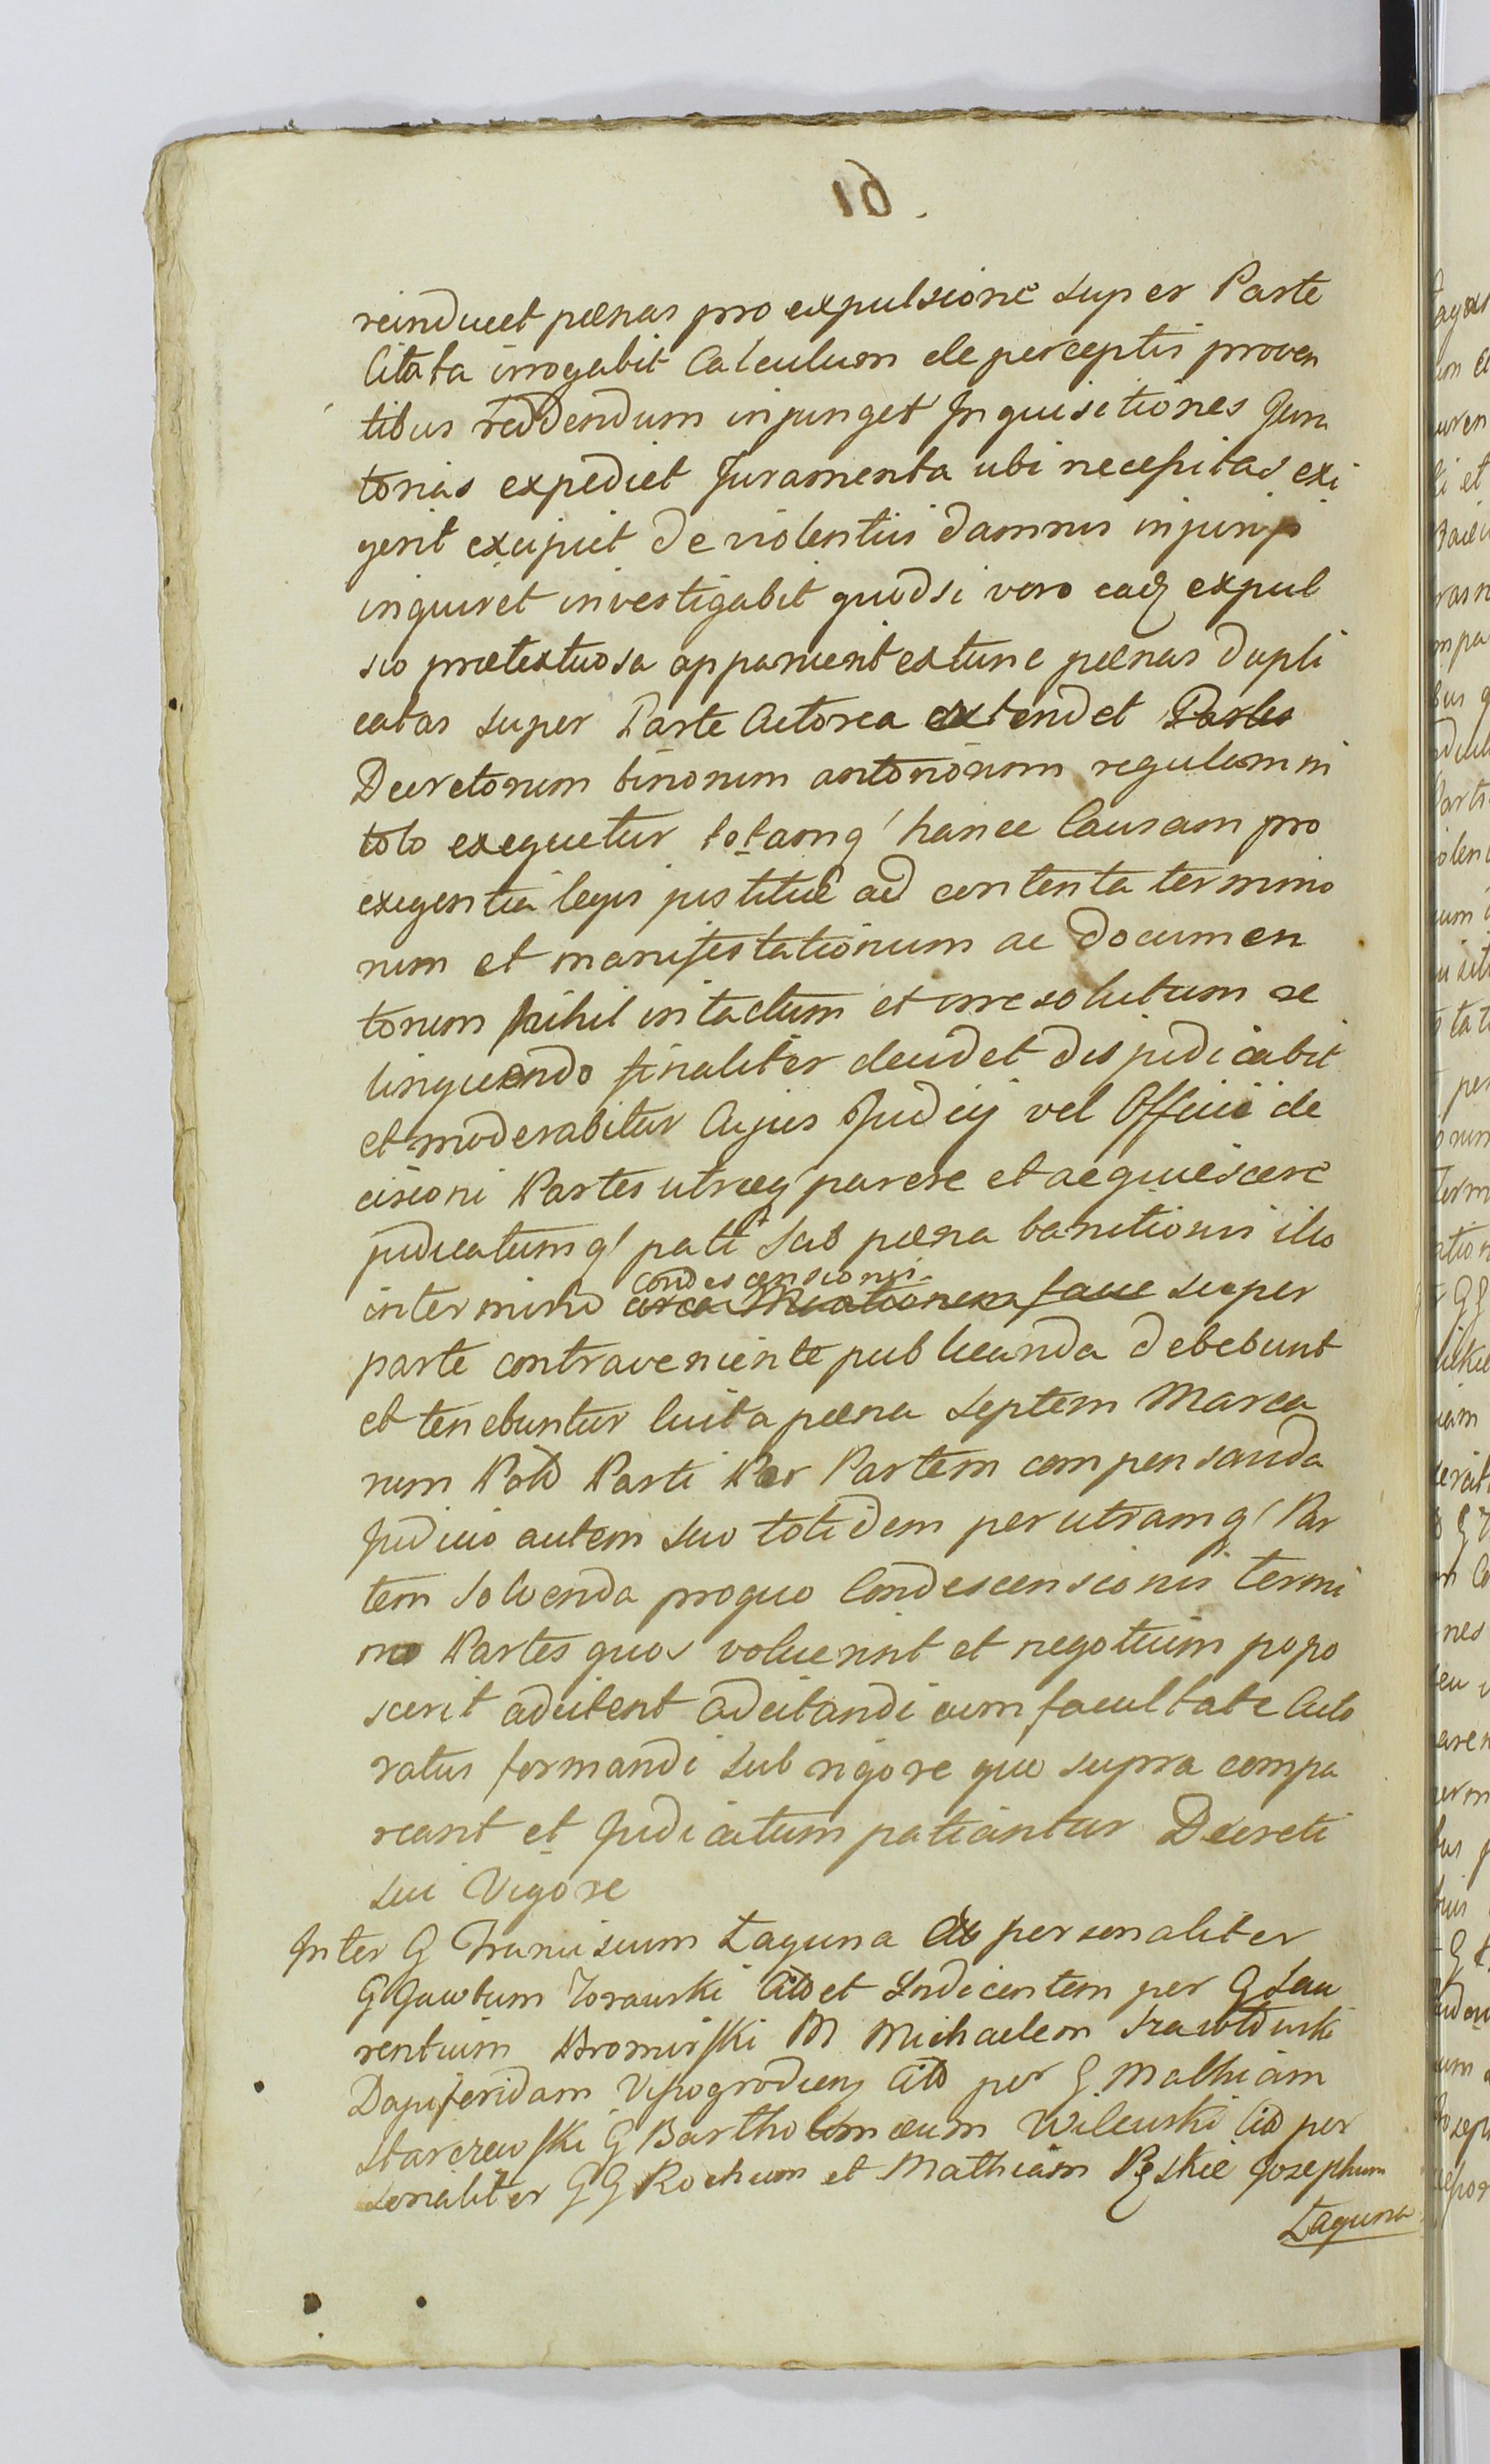 16.
reinducet pœnas pro expulsione super Parte
Citata irrogabit Calculum de perceptis proven
tibus reddendum injunget Inquisitiones Jura
torias expediet Juramenta ubi necessitas exi
gerit excipiet de violentiis damnis injuriis
inquiret investigabit quodsi vero eadz expul
sio prætextuosa apparuerit extunc pœnas dupli
catas super Parte Actorea extendet
Decretorum binorum regulam in
toto exequetur totamq hance Causam pro
exigentia legis justitiæ ad contenta termino
rum et manifestationum ac documen
torum nihil intactum et irresolutum re
linquendo finaliter decidet disjudicabit
et moderabitur Cujus Judicij vel Officii de
cisioni Partes utræq parere et acquiescere
judicatumq pati sub pœna banitionis illo
condescensionis
in termino circa super
parte contraveniente publicanda debebunt
et tenebuntur luita pœna septem Marca
rum Pol Parti Per Partem compensanda
Judicio autem suo totidem per utramq Par
tem solvenda pro quo Condescensionis termi
no Partes quos voluerint et negotium popo
scerit adcitent adcitandi cum facultate Acto
ratus formandi sub rigore quo supra compa
reant et Judicatum patiantur Decreti
sui Vigore
Inter G Franciscum Łaguna Ax personaliter
G Zorawski Cito et Indicentem per G Lau
rentium Bromirski M Michaelem
Dapiferidam Vissogrodien Cito per G. Mathiam
Starczewski G Bartholomæum Wilewski Cito per
sonaliter G G Rochum et Mathiam Rzskie Josephum
Łaguna